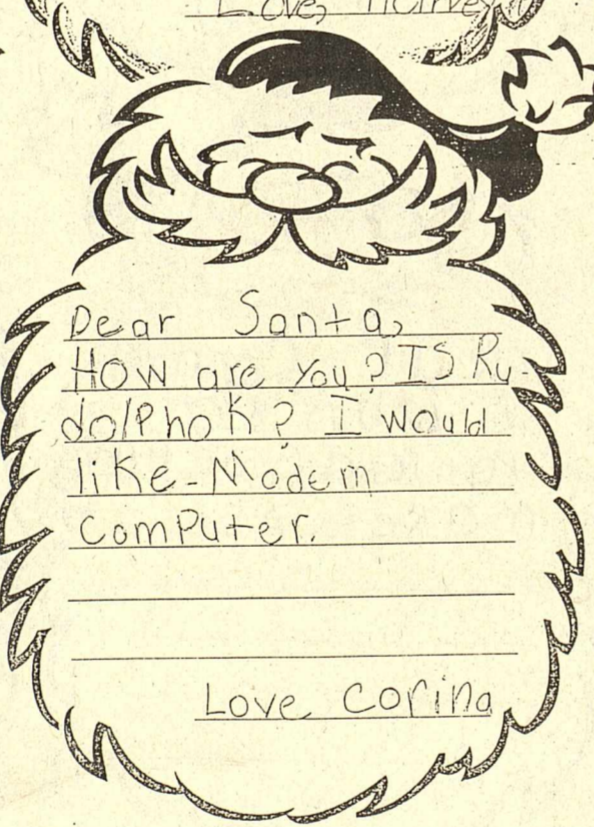 Love, Harvey
Dear Santa,
How are you? IS Ru-
dolPh ok? I would
like-Modem
ComPuter.
Love Corina